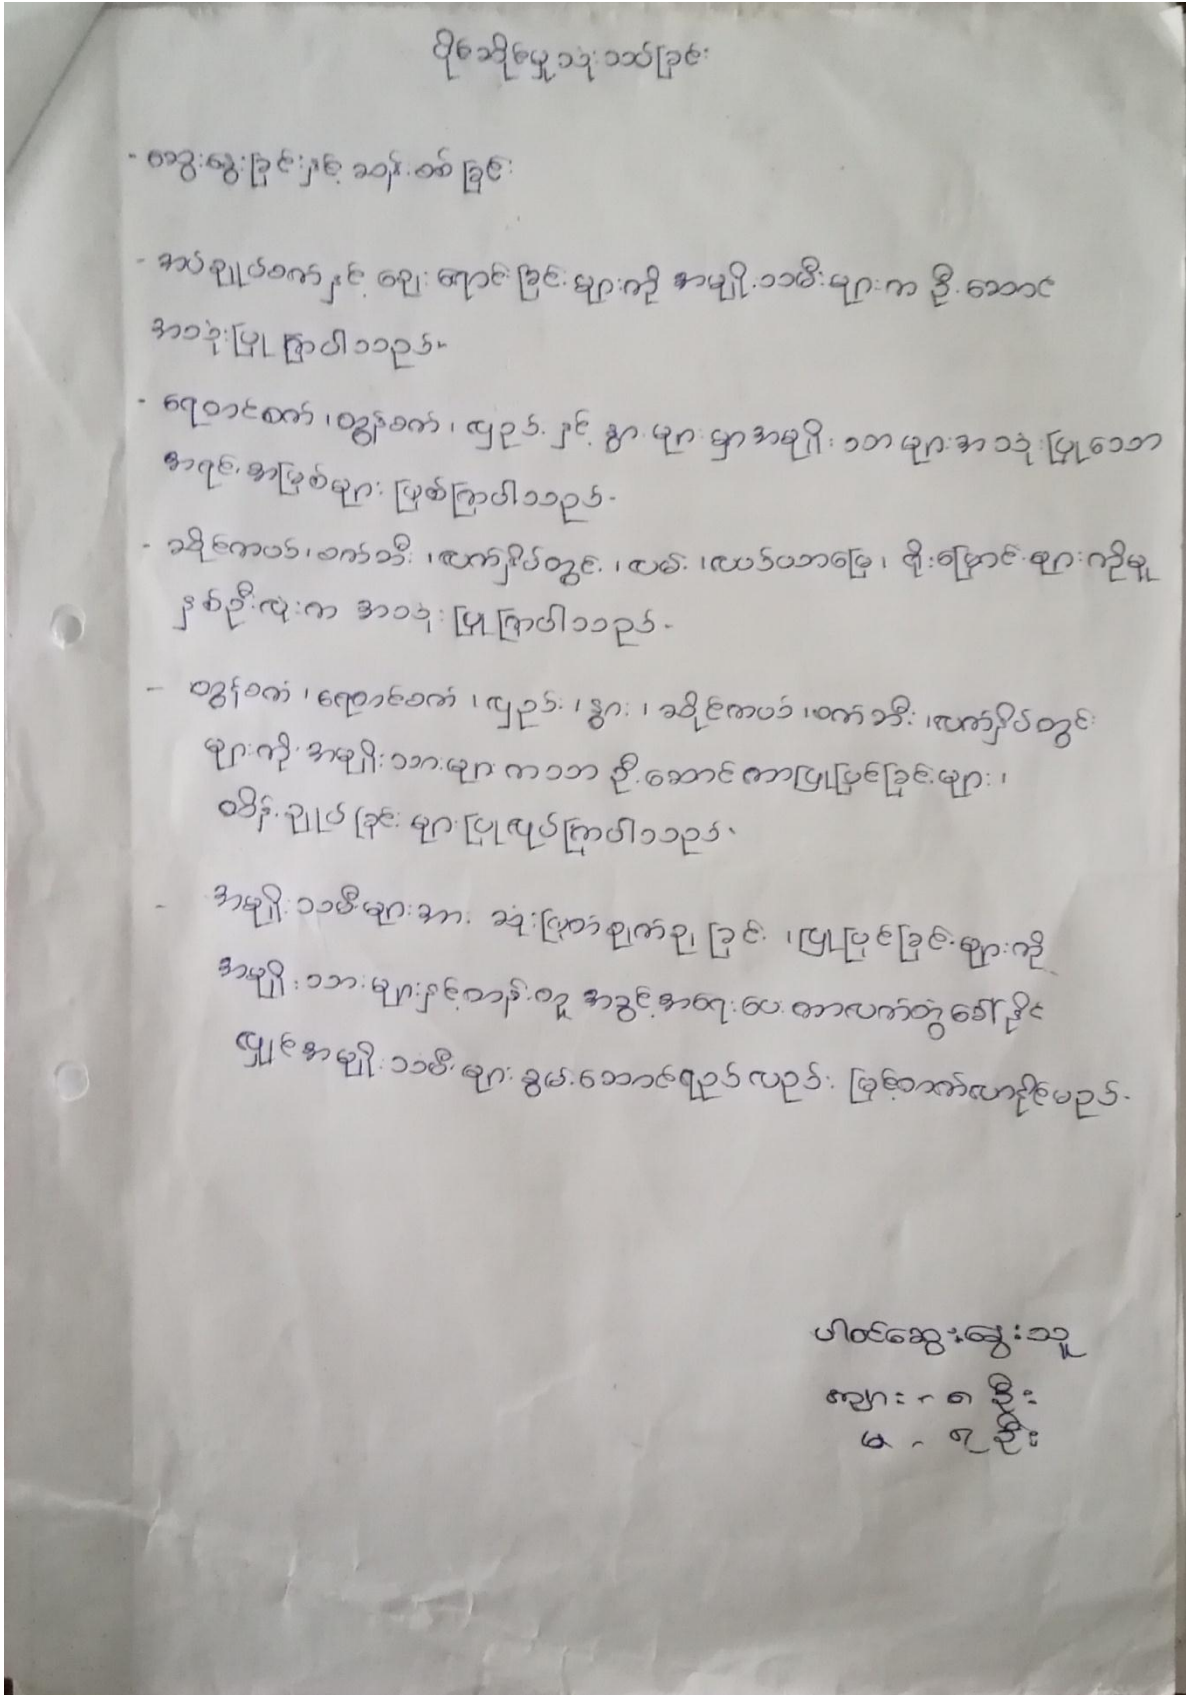 ပိုဆိုမှုသုံးသပ်ခြင်း
- ဆွေးနွေးခြင်းနှင့် ဆန်းစစ်ခြင်း
- အပ်ချုပ်စက်နှင့် ဈေးရောင်းခြင်းများကို အမျိုးသမီးများက ဦးဆောင်
အသုံးပြုကြပါသည်။
- ရေတင်စက်၊ ထွန်စက်၊ လှည်းနှင့် နွားများမှာ အမျိုးသားများအသုံးပြုသော
အရင်းအမြစ်များ ဖြစ်ကြပါသည်။
- ဆိုင်ကယ်၊ စက်ဘီး၊ လက်နှိပ်တွင်း၊ လမ်း၊ လယ်ယာမြေ၊ မိုးမြောင်းများကိုမူ
နှစ်ဦးလုံးက အသုံးပြုကြပါသည်။
- ထွန်စက်၊ ရေတင်စက်၊ လှည်း၊ နွား၊ ဆိုင်ကယ်၊ စက်ဘီး၊ လက်နှိပ်တွင်း
များကို အမျိုးသားများကသာ ဦးဆောင်ကာပြုပြင်ခြင်းများ၊
ထိန်းချုပ်ခြင်းများပြုလုပ်ကြပါသည်။
- အမျိုးသမီးများအား ဆုံးဖြတ်ချက်ချခြင်း၊ ပြုပြင်ခြင်းများကို
အမျိုးသားများနှင့်တန်းတူ အခွင့်အရေးပေးကာလက်တွဲခေါ်နိုင်
လျှင်အမျိုးသမီးများစွမ်းဆောင်ရည်လည်း မြင့်တက်လာနိုင်မည်။
ပါဝင်ဆွေးနွေးသူ
ကျား - ၈ ဦး
မ - ၇ ဦး